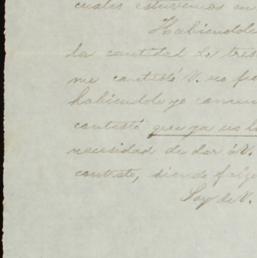 cuales estuvimos en
Habiendole
la cantidad de tres
me contestó V. no po
habiendole yo
contesté que ya no l
necesidad de dar á V.
contesto, siendo
Soy de V.